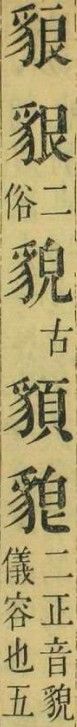 貇二俗貌古䫉貌二正音貌儀容也五